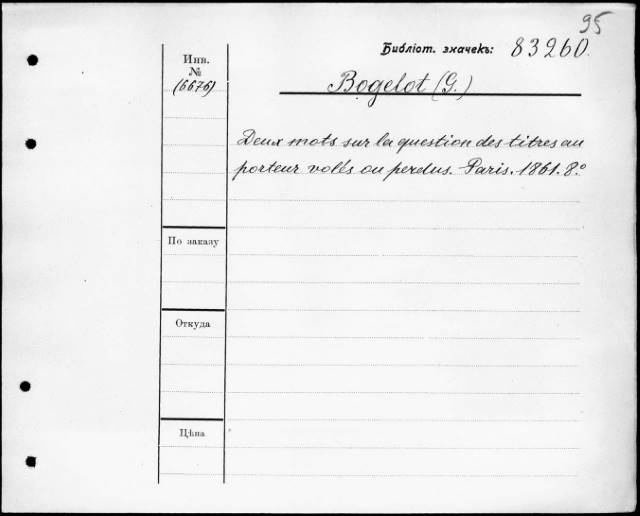 95
Библіот. значекъ: 83260.
Инв.
№
(6676)
Bogelot (G.)
Deux mots sur la question des titres au
porteur volés ou perdus. Paris. 1861. 8.º
По заказу
Откуда
Цѣна